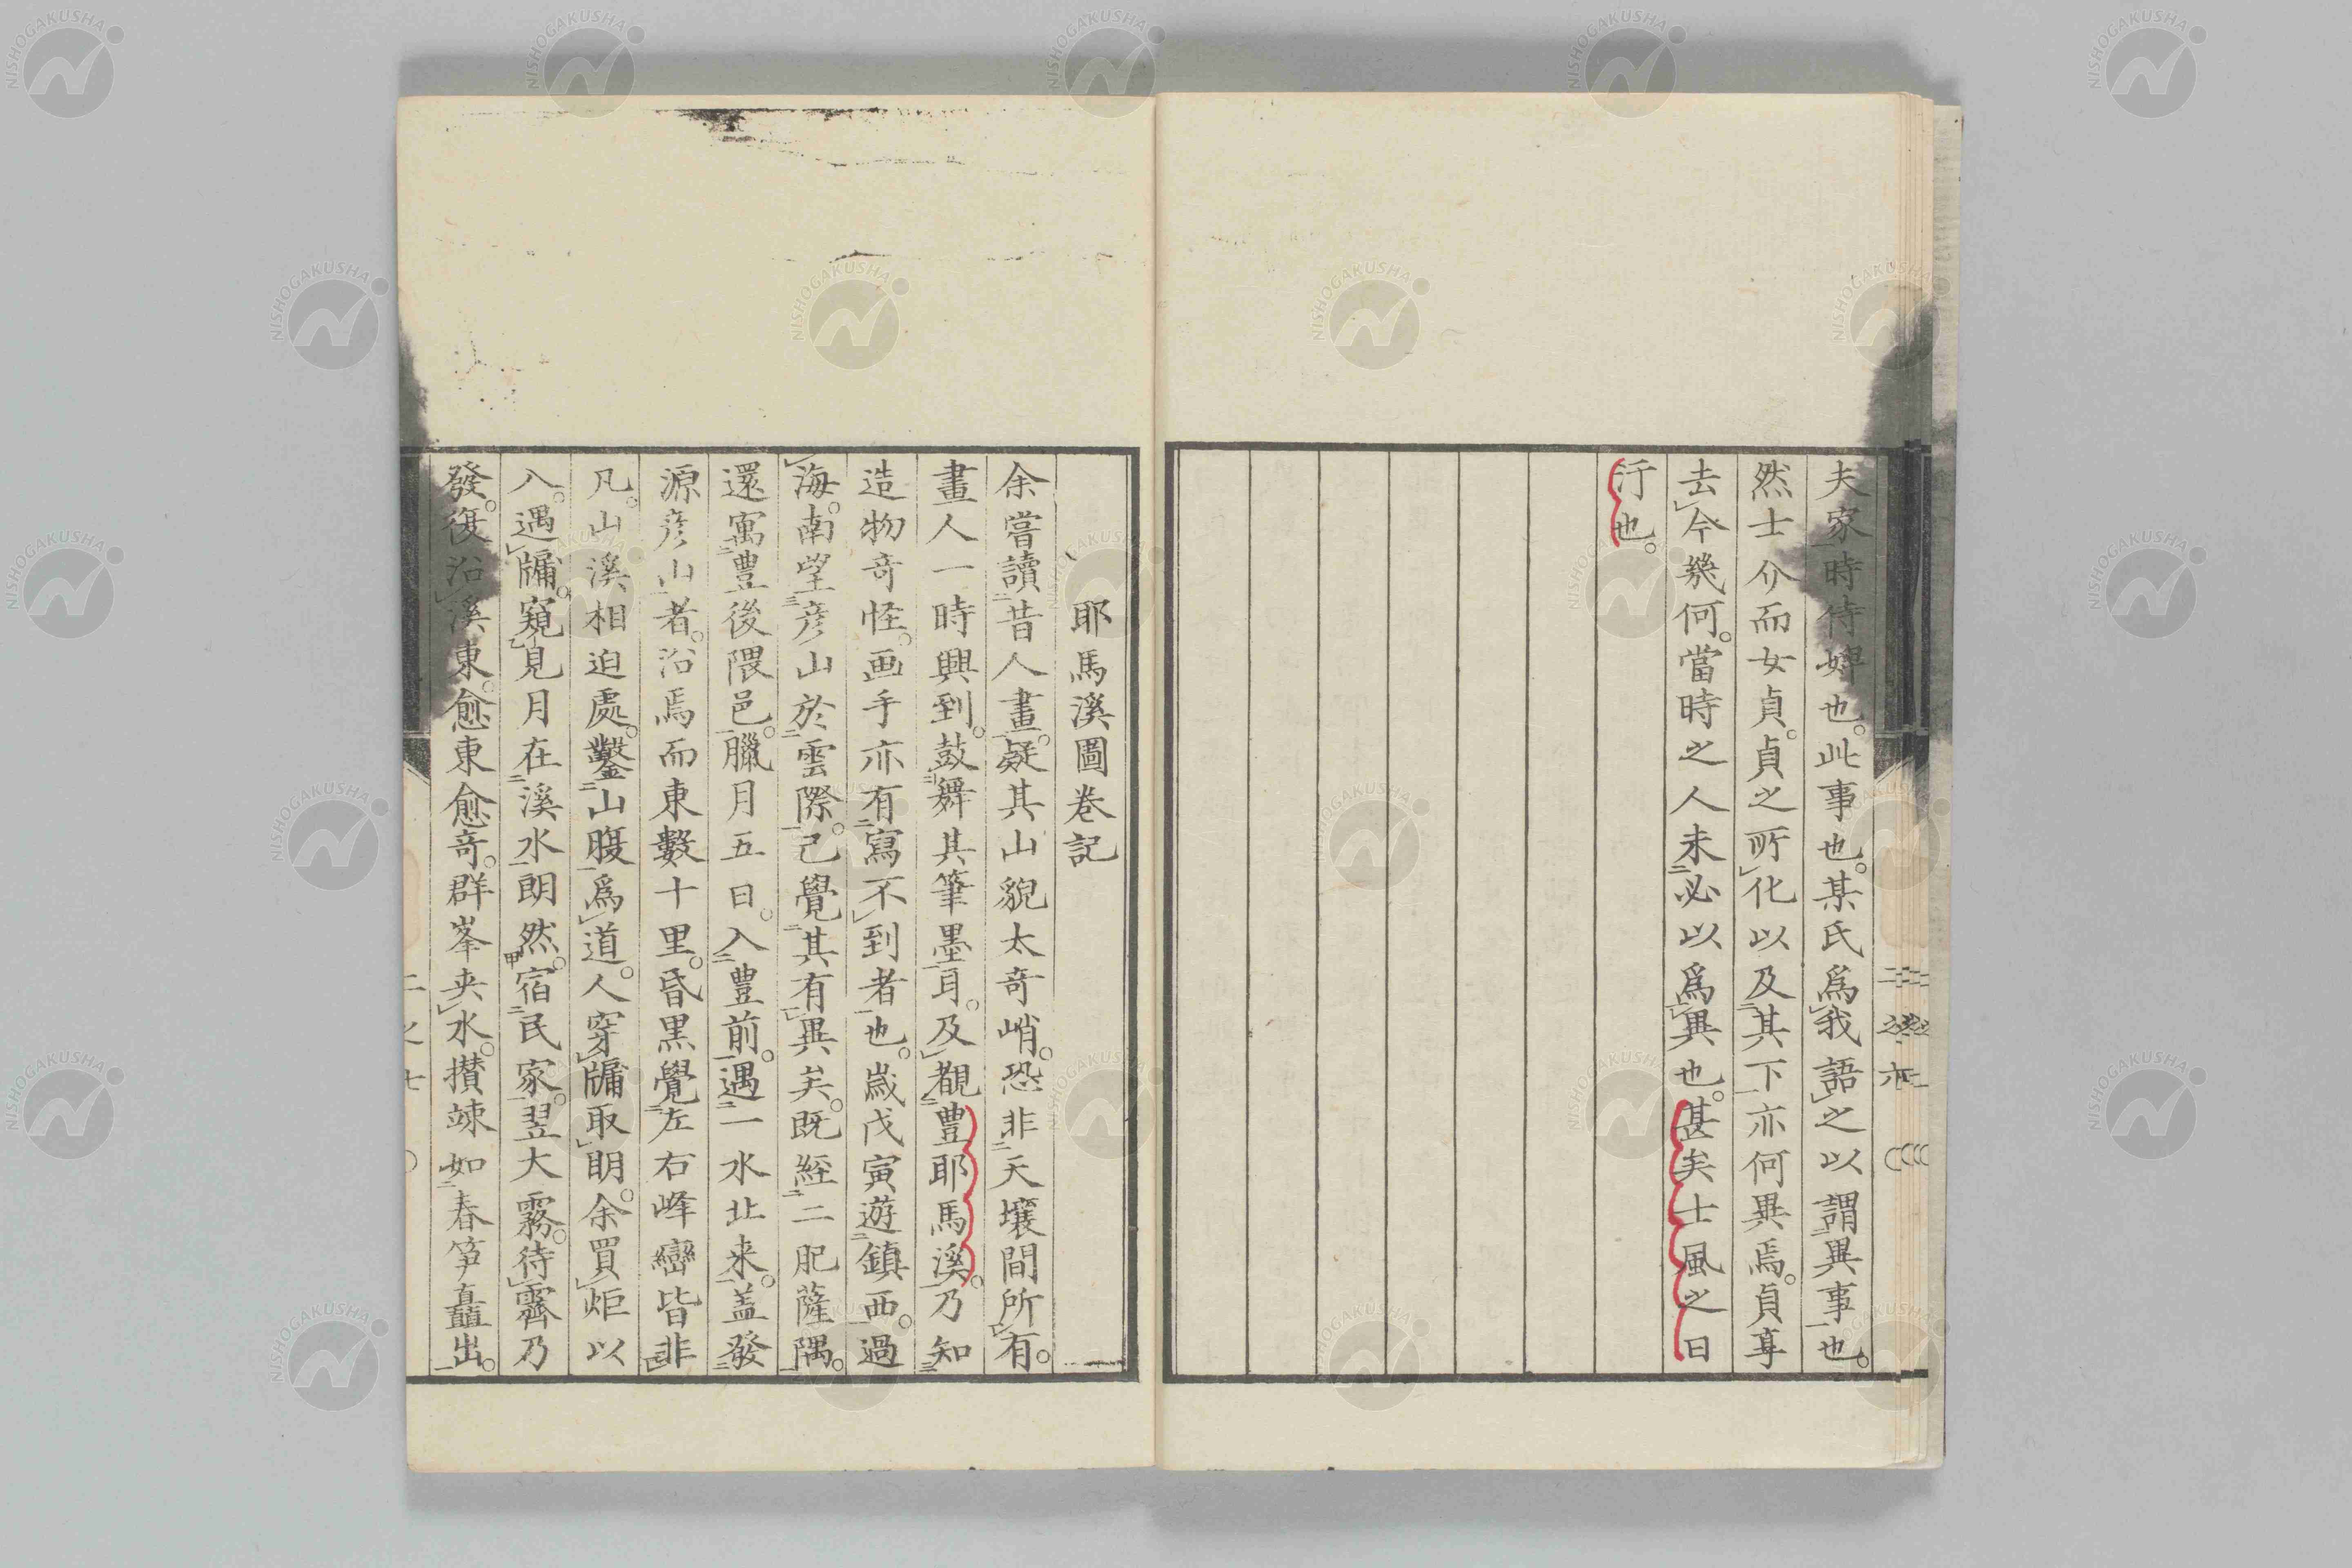 夫家時侍婢也。此事也。某氏爲我語之以謂異事也。
然士介而女貞。貞之所化以及其下亦何異焉。貞享
去今幾何。當時之人未必以爲異也。甚矣士風之日
汙也。
耶馬溪圖卷記
余嘗讀昔人畫。疑其山貌太奇峭。恐非天壤間所有。
畫人一時興到。鼓舞其筆墨耳。及觀豊耶馬溪。乃知
造物奇怪。画手亦有寫不到者也。歳戊寅遊鎮西。過
海。南望彦山於雲際。已覺其有異矣。既經二肥薩隅。
還寓豊後隈邑。臘月五日。入豊前。遇一水北来。盖發
源彦山者。沿焉而東數十里。昏黒覺左右峰巒皆非
凡。山溪相迫處。鑿山腹爲道。人穿牖取明。余買炬以
入。遇牖。窺見月在溪水朗然。宿民家。翌大霧。待霽乃
發。復沿溪東。愈東愈奇。群峯夾水。攅竦如春笋矗出。
二之七